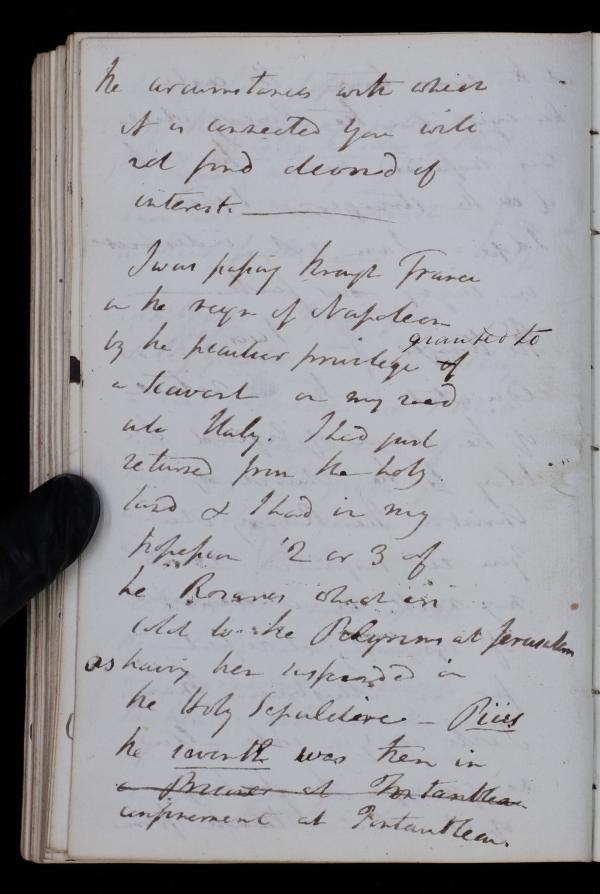 the circumstances with which
it is connected you will
not find devoid of
interest.
I was passing through France
in the reign of Napoleon
granted to
by the peculiar privilege of
a savant on my road
into Italy. I had just
returned from the holy
land & I had in my
possession 2 or 3 of
the Rosaries which are
sold to the Pilgrims at Jerusalem
as having been suspended in
the Holy Sepulchre – Pius
the seventh was then in
a Prisoner at Fontainbleau
confinement at Fontainbleau.